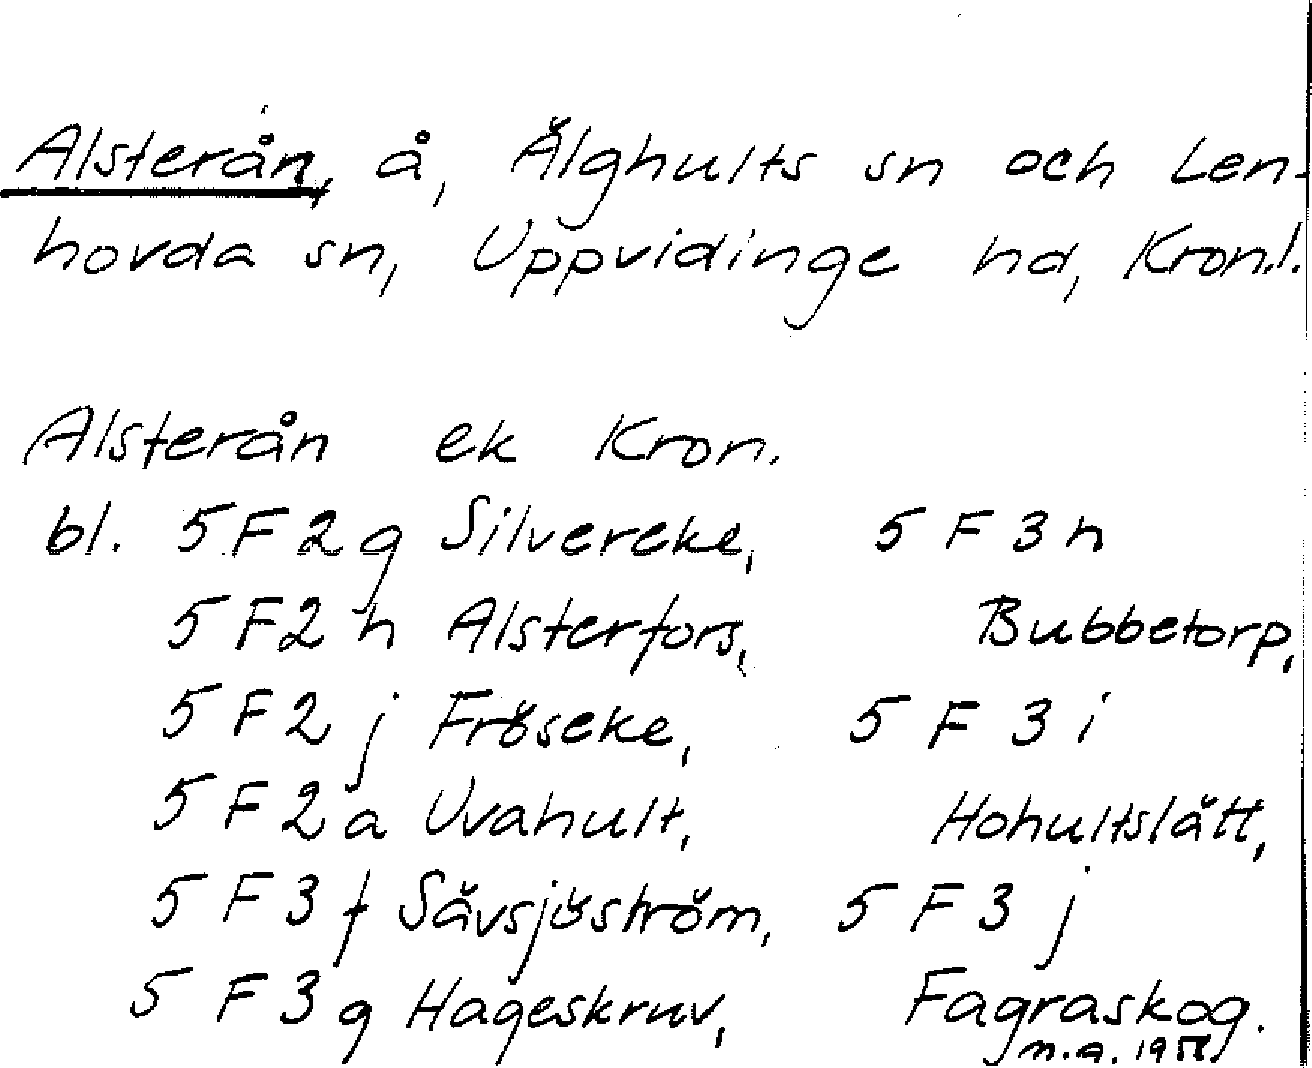 Alsterån, å, Älghults sn och Len-
hovda sn, Uppvidinge hd, Kron.l.
Alsterån ek Kron.
bl. 5 F 2 g Silvereke, 5 F 3 h
5 F 2 h Alsterfors, Bubbetorp,
5 F 2 j Fröseke, 5 F 3 i
5 F 2 a Uvahult, Hohultslätt,
5 F 3 f Sävsjöström, 5 F 3 j
5 F 3 g Hageskruv, Fagraskog.
n.a.